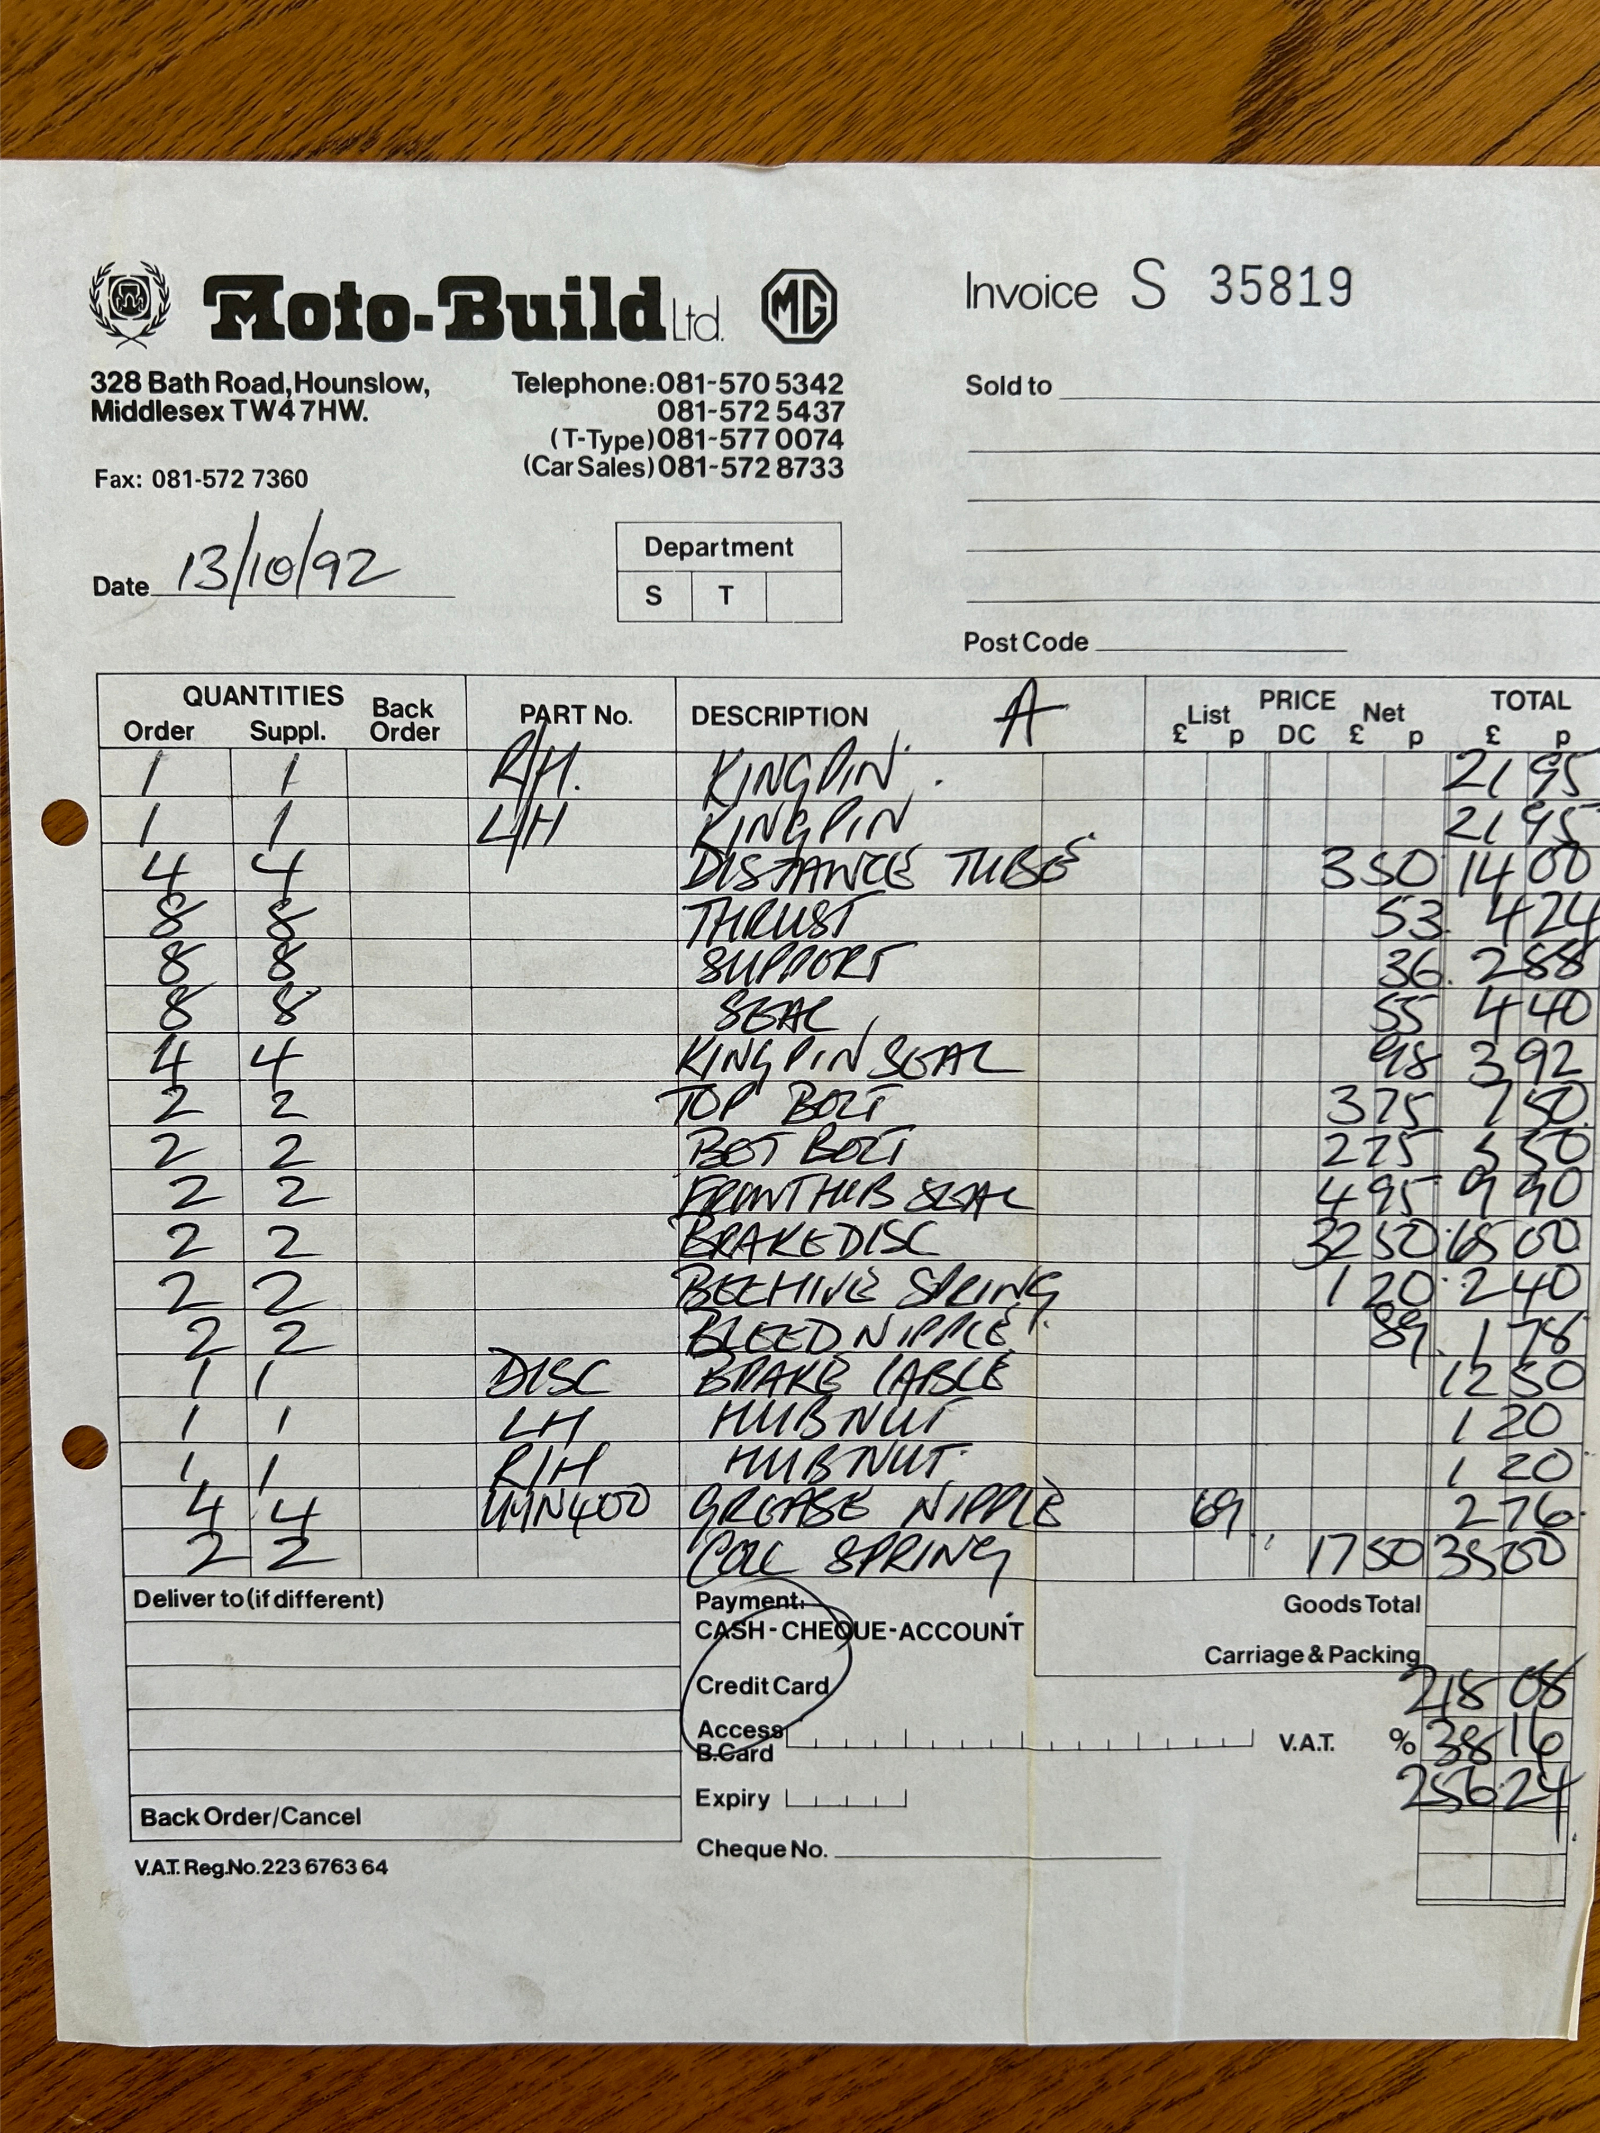 Moto-Build Ltd. MG
Invoice S 35819
328 Bath Road, Hounslow,
Middlesex TW4 7HW.
Telephone: 081-570 5342
081-572 5437
(T-Type) 081-577 0074
(Car Sales) 081-572 8733
Fax: 081-572 7360
Sold to
Date 13/10/92
Department
S T
Post Code
QUANTITIES
Order Suppl. Back Order PART No. DESCRIPTION A PRICE List £ p DC Net £ p TOTAL £ p
1 1 R/H. KINGPIN. 21 95
1 1 L/H KINGPIN 21 95
4 4 DISTANCE TUBES 3 50 14 00
8 8 THRUST 53 4 24
8 8 SUPPORT 36 2 88
8 8 SEAL 55 4 40
4 4 KINGPIN SEAL 98 3 92
2 2 TOP BOLT 3 75 7 50
2 2 BOT BOLT 2 75 5 50
2 2 FRONT HUB SEAL 4 95 9 90
2 2 BRAKE DISC 32 50 65 00
2 2 BEEHIVE SPRING 1 20 2 40
2 2 BLEED NIPPLE 89 1 78
1 1 DISC BRAKE CABLE 12 50
1 1 LH HUB NUT 1 20
1 1 R/H HUB NUT 1 20
4 4 UHN400 GREASE NIPPLE 69 2 76
2 2 COIL SPRING 17 50 35 00
Deliver to (if different)
Payment:
CASH-CHEQUE-ACCOUNT
Goods Total
Carriage & Packing
Credit Card
218 08
Access
B.Card
V.A.T. % 38 16
Expiry
256 24
Back Order/Cancel
Cheque No.
V.A.T. Reg.No. 223 6763 64